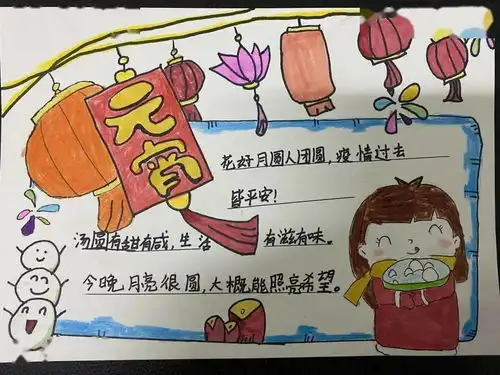 元宵
花好月圆人团圆,疫情过去
皆平安!
汤圆有甜有咸,生活有滋有味。
今晚月亮很圆,大概能照亮希望。